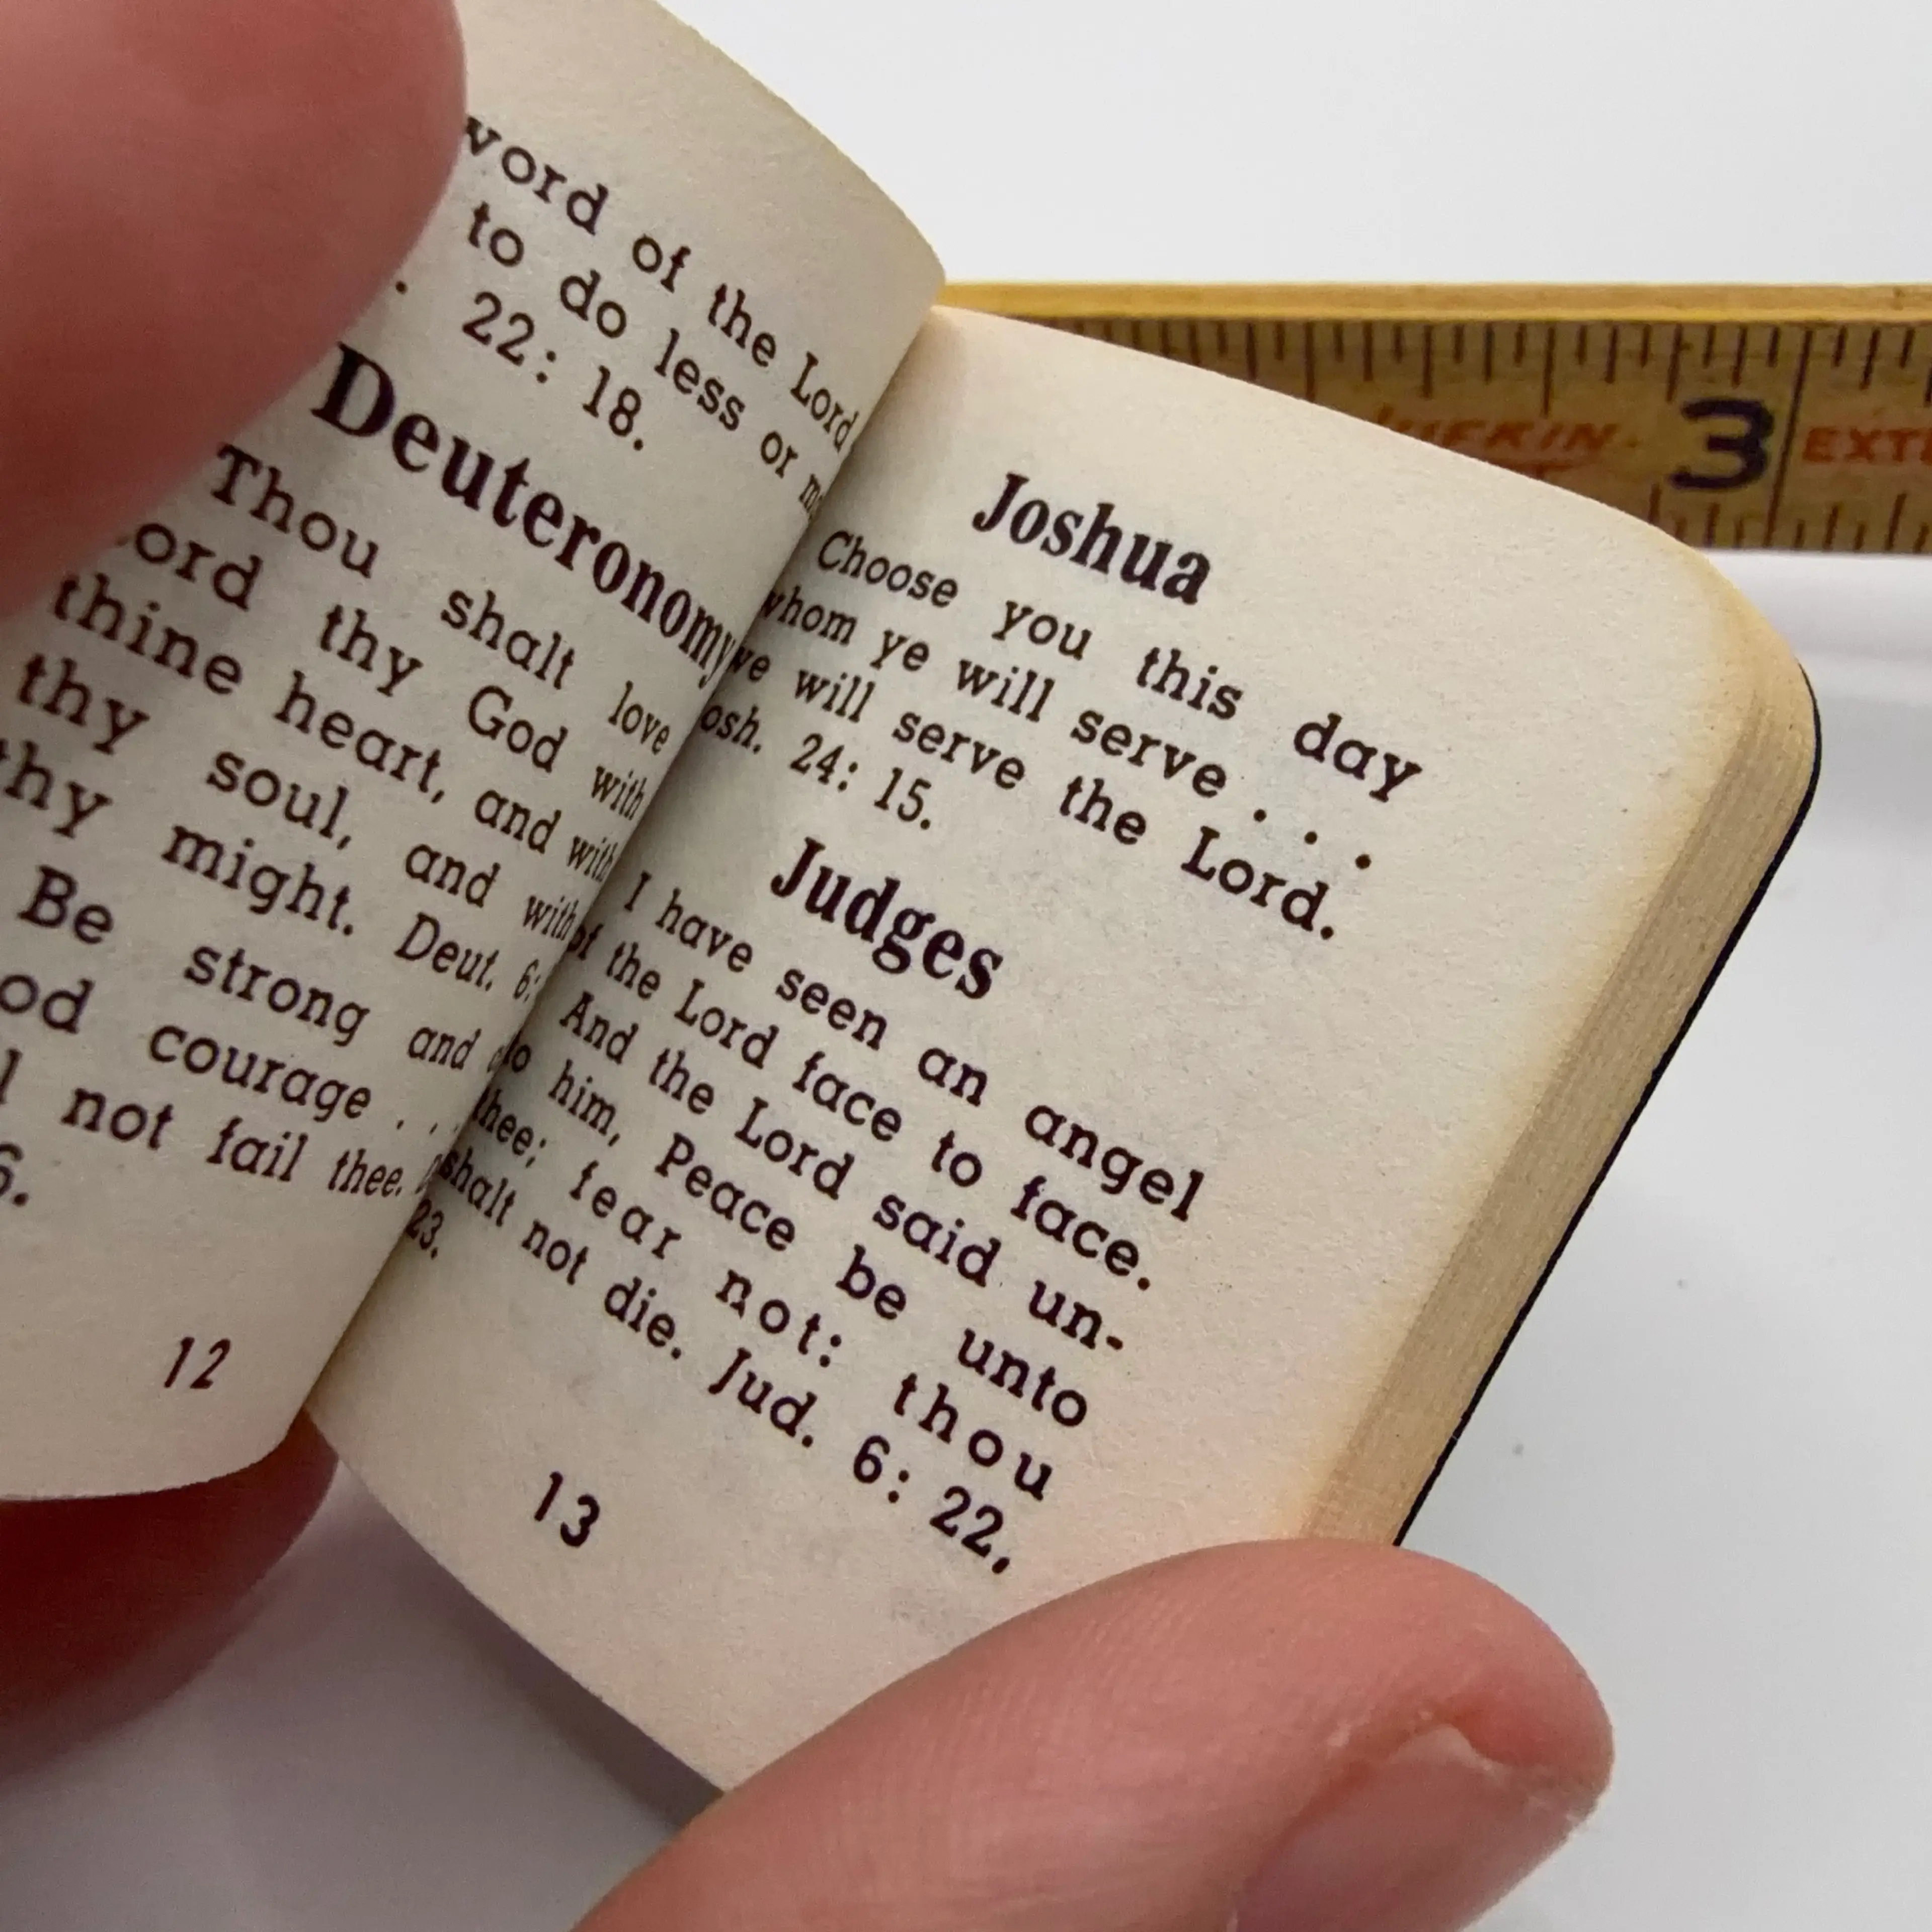 word of the Lord
to do less or
22: 18.
Deuteronomy
Thou shalt love
thy God with
thine heart, and with
thy soul, and with
thy might. Deut. 6:
Be strong and
courage . . .
not fail thee.
6.
12
Joshua
Choose you this day
whom ye will serve . . .
we will serve the Lord.
osh. 24: 15.
Judges
I have seen an angel
of the Lord face to face.
And the Lord said un-
to him, Peace be unto
thee; fear not: thou
shalt not die. Jud. 6: 22,
23.
13
LUFKIN
3
EXTE